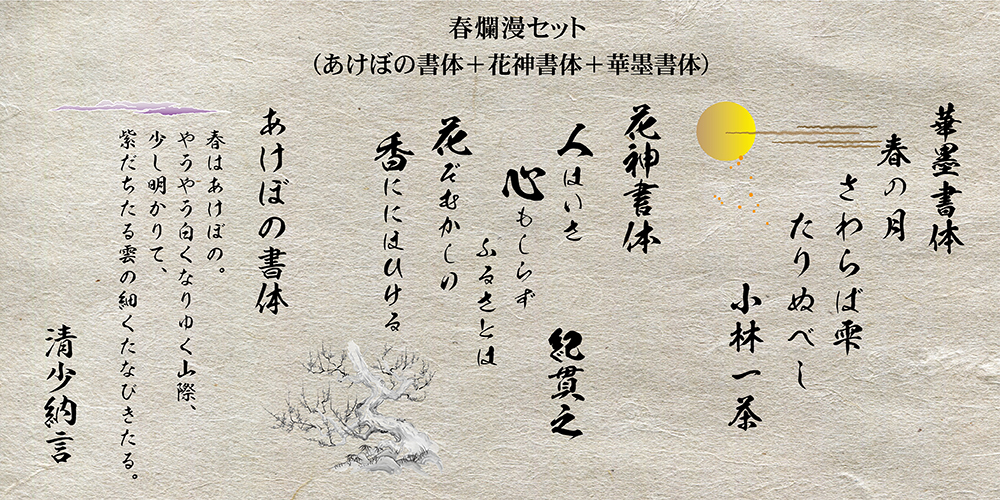 春爛漫セット
（あけぼの書体＋花神書体＋華墨書体）
華墨書体
春の月
さわらば雫
たりぬべし
小林一茶
花神書体
人はいさ
心もしらず
ふるさとは
花ぞむかしの
香ににほひける
紀貫之
あけぼの書体
春はあけぼの。
やうやう白くなりゆく山際、
少し明かりて、
紫だちたる雲の細くたなびきたる。
清少納言